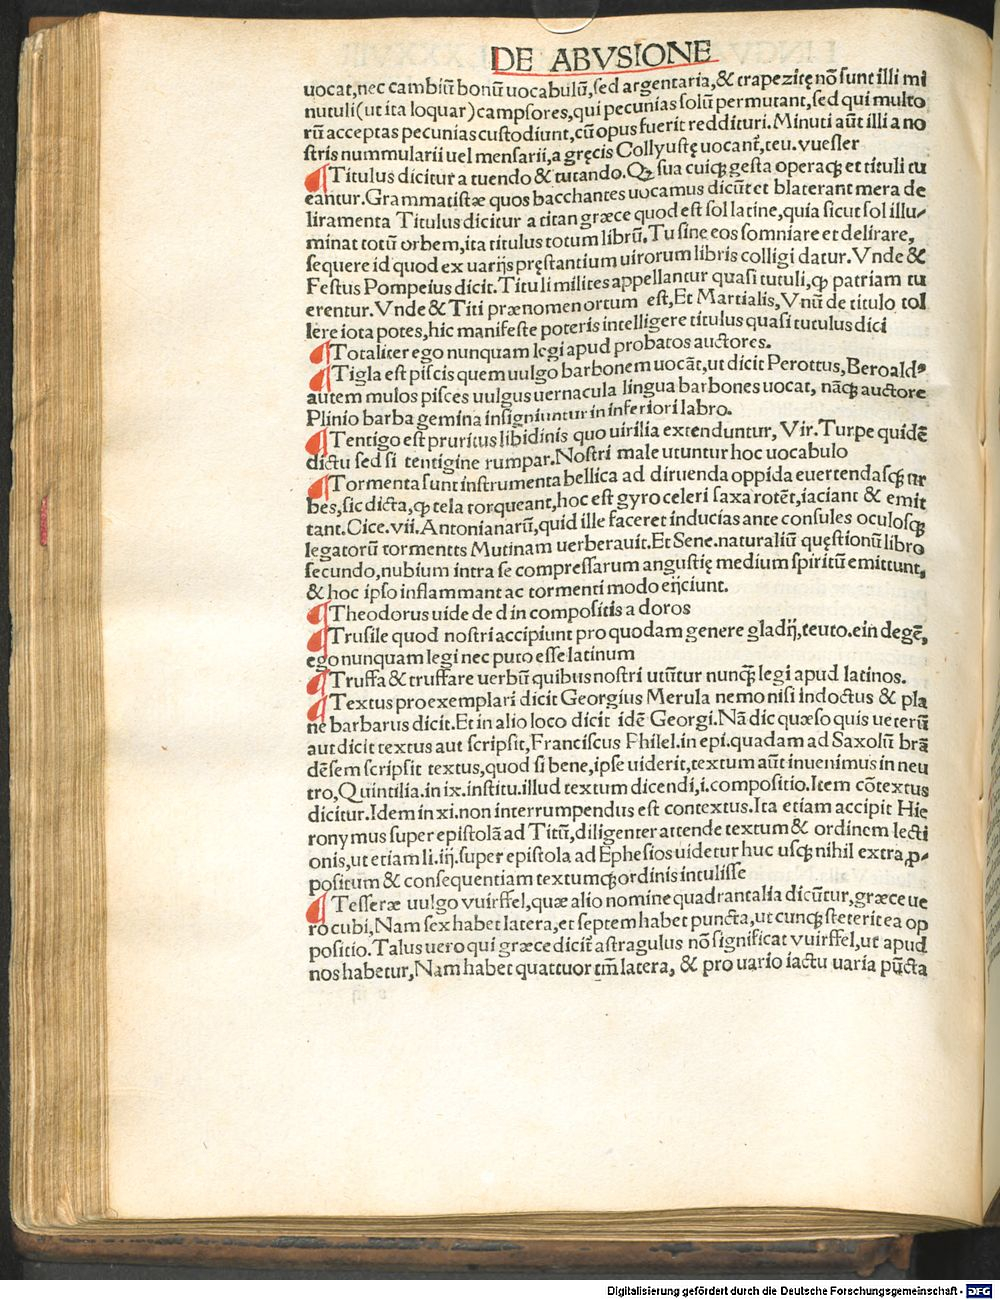 DE ABVSIONE
uocat,nec cambiū bonū uocabulū,sed argentaria,& trapezitę nō sunt illi mi
nutuli(ut ita loquar)campsores,qui pecunias solū permutant,sed qui multo
rū acceptas pecunias custodiunt,cū opus fuerit reddituri.Minuti aūt illi a no
stris nummularii uel mensarii,a gręcis Collyustę uocant̃,teu.vuesler
¶Titulus dicitur a tuendo & tutando.Qꝫ sua cuiqꝫ gesta operaqꝫ et tituli tu
eantur.Grammatistæ quos bacchantes uocamus dicūt et blaterant mera de
liramenta Titulus dicitur a titan græce quod est sol latine,quia sicut sol illu-
minat totū orbem,ita titulus totum librū.Tu sine eos somniare et delirare,
sequere id quod ex uarijs pręstantium uirorum libris colligi datur.Vnde &
Festus Pompeius dicit.Tituli milites appellantur quasi tutuli,ꝙ patriam tu
erentur.Vnde & Titi prænomen ortum est,Et Martialis,Vnū de titulo tol
lere iota potes,hic manifeste poteris intelligere titulus quasi tutulus dici
¶Totaliter ego nunquam legi apud probatos auctores.
¶Tigla est piscis quem uulgo barbonem uocāt,ut dicit Perottus,Beroaldꝰ
autem mulos pisces uulgus uernacula lingua barbones uocat, nāqꝫ auctore
Plinio barba gemina insigniuntur in inferiori labro.
¶Tentigo est pruritus libidinis quo uirilia extenduntur, Vir.Turpe quidē
dictu sed si tentigine rumpar.Nostri male utuntur hoc uocabulo
¶Tormenta sunt instrumenta bellica ad diruenda oppida euertendasqꝫ ur
bes,sic dicta,ꝙ tela torqueant,hoc est gyro celeri saxa rotēt,iaciant & emit
tant.Cice.vii.Antonianarū,quid ille faceret inducias ante consules oculosqꝫ
legatorū tormentis Mutinam uerberauit.Et Sene.naturaliū quęstionū libro
secundo,nubium intra se compressarum angustię medium spiritū emittunt,
& hoc ipso inflammant ac tormenti modo eijciunt.
¶Theodorus uide de d in compositis a doros
¶Trusile quod nostri accipiunt pro quodam genere gladij,teuto.ein degē,
ego nunquam legi nec puto esse latinum
¶Truffa & truffare uerbū quibus nostri utūtur nunqꝫ legi apud latinos.
¶Textus pro exemplari dicit Georgius Merula nemo nisi indoctus & pla
ne barbarus dicit.Et in alio loco dicit idē Georgi.Nā dic quæso quis ueterū
aut dicit textus aut scripsit,Franciscus Philel.in epi.quadam ad Saxolū brā
dēsem scripsit textus,quod si bene,ipse uiderit,textum aūt inuenimus in neu
tro,Quintilia.in ix.institu.illud textum dicendi,i.compositio.Item cōtextus
dicitur.Idem in xi.non interrumpendus est contextus.Ita etiam accipit Hie
ronymus super epistolā ad Titū,diligenter attende textum & ordinem lecti
onis,ut etiam li.iij.super epistola ad Ephesios uidetur huc usqꝫ nihil extra ꝓ-
positum & consequentiam textumqꝫ ordinis intulisse
¶Tesseræ uulgo vuirffel,quæ alio nomine quadrantalia dicūtur,græce ue
ro cubi,Nam sex habet latera,et septem habet puncta,ut cunqꝫ steterit ea op
positio.Talus uero qui græce dicit̃ astragulus nō significat vuirffel,ut apud
nos habetur,Nam habet quattuor tm̄ latera, & pro uario iactu uaria pūcta
Digitalisierung gefördert durch die Deutsche Forschungsgemeinschaft - DFG